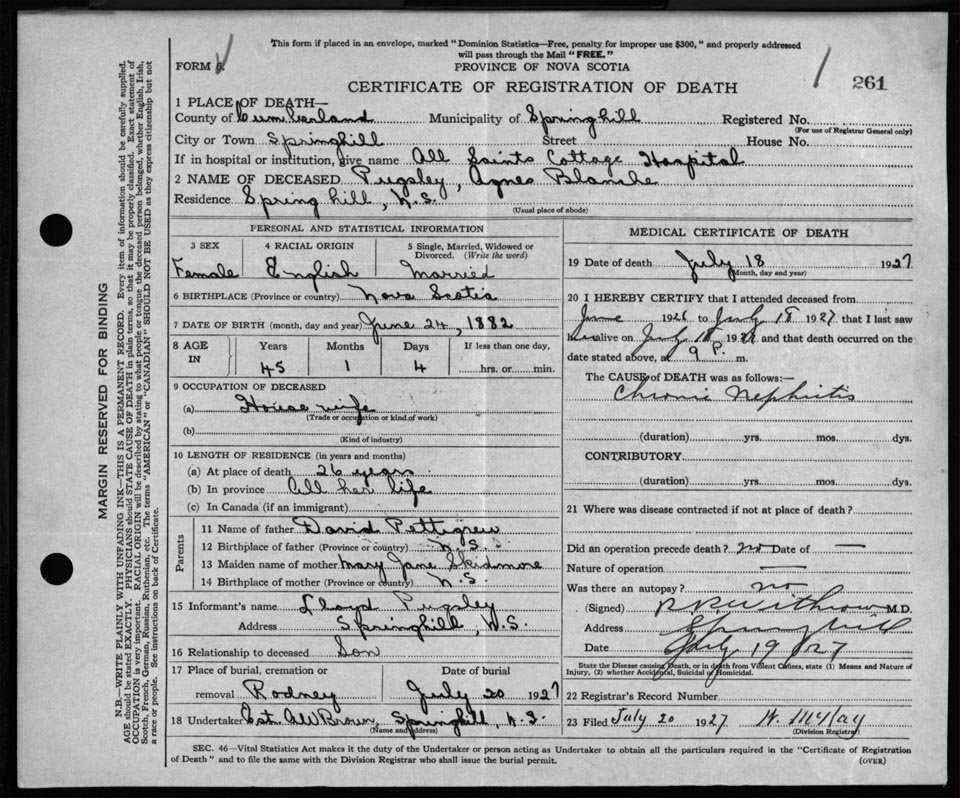 This form if placed in an envelope, marked "Dominion Statistics—Free, penalty for improper use $300," and properly addressed
will pass through the Mail "FREE."
FORM 6.
PROVINCE OF NOVA SCOTIA
261
CERTIFICATE OF REGISTRATION OF DEATH
1 PLACE OF DEATH—
County of Cumberland Municipality of Springhill Registered No.
(For use of Registrar General only)
City or Town Springhill Street House No.
If in hospital or institution, give name All Saints Cottage Hospital
2 NAME OF DECEASED Pugsley, Agnes Blanche
Residence Spring hill, N.S.
(Usual place of abode)
PERSONAL AND STATISTICAL INFORMATION
3 SEX 4 RACIAL ORIGIN 5 Single, Married, Widowed or
Divorced. (Write the word)
Female English Married
6 BIRTHPLACE (Province or country) Nova Scotia
7 DATE OF BIRTH (month, day and year) June 24, 1882
8 AGE IN Years Months Days If less than one day,
45 1 4 hrs. or min.
9 OCCUPATION OF DECEASED
(a) House wife
(Trade or occupation or kind of work)
(b)
(Kind of industry)
10 LENGTH OF RESIDENCE (in years and months)
(a) At place of death 26 years
(b) In province All her life
(c) In Canada (if an immigrant)
Parents
11 Name of father David Pettigrew
12 Birthplace of father (Province or country) N.S.
13 Maiden name of mother Mary Jane Skidmore
14 Birthplace of mother (Province or country) N.S.
15 Informant's name Lloyd Pugsley
Address Springhill, N.S.
16 Relationship to deceased Son
17 Place of burial, cremation or Date of burial
removal Rodney July 20 1927
18 Undertaker Est. A W Brown, Springhill, N.S.
(Name and address)
MEDICAL CERTIFICATE OF DEATH
19 Date of death July 18 1927
(Month, day and year)
20 I HEREBY CERTIFY that I attended deceased from
June 1926 to July 18 1927 that I last saw
alive on July 18 192 and that death occurred on the
date stated above, at 9 P. m.
The CAUSE of DEATH was as follows:—
Chronic Nephritis
(duration) yrs. mos. dys.
CONTRIBUTORY
(duration) yrs. mos. dys.
21 Where was disease contracted if not at place of death?
Did an operation precede death? no Date of —
Nature of operation —
Was there an autopsy? no
(Signed) Withrow M.D.
Address Springhill
Date July 19 1927
State the Disease causing Death, or in death from Violent Causes, state (1) Means and Nature of
Injury, (2) whether Accidental, Suicidal or Homicidal.
22 Registrar's Record Number
23 Filed July 20 1927
(Division Registrar)
SEC. 46—Vital Statistics Act makes it the duty of the Undertaker or person acting as Undertaker to obtain all the particulars required in the "Certificate of Registration
of Death" and to file the same with the Division Registrar who shall issue the burial permit.
(OVER)
MARGIN RESERVED FOR BINDING
N.B.—WRITE PLAINLY WITH UNFADING INK—THIS IS A PERMANENT RECORD. Every item of information should be carefully supplied.
AGE should be stated EXACTLY. PHYSICIANS should STATE CAUSE OF DEATH in plain terms, so that it may be properly classified. Exact statement of
OCCUPATION is very important. RACIAL ORIGIN will be described by stating to what people or tongue the deceased person belonged, whether English, Irish,
Scotch, French, German, Russian, Ruthenian, etc. The terms "AMERICAN" or "CANADIAN" SHOULD NOT BE USED as they express citizenship but not
a race or people. See instructions on back of Certificate.